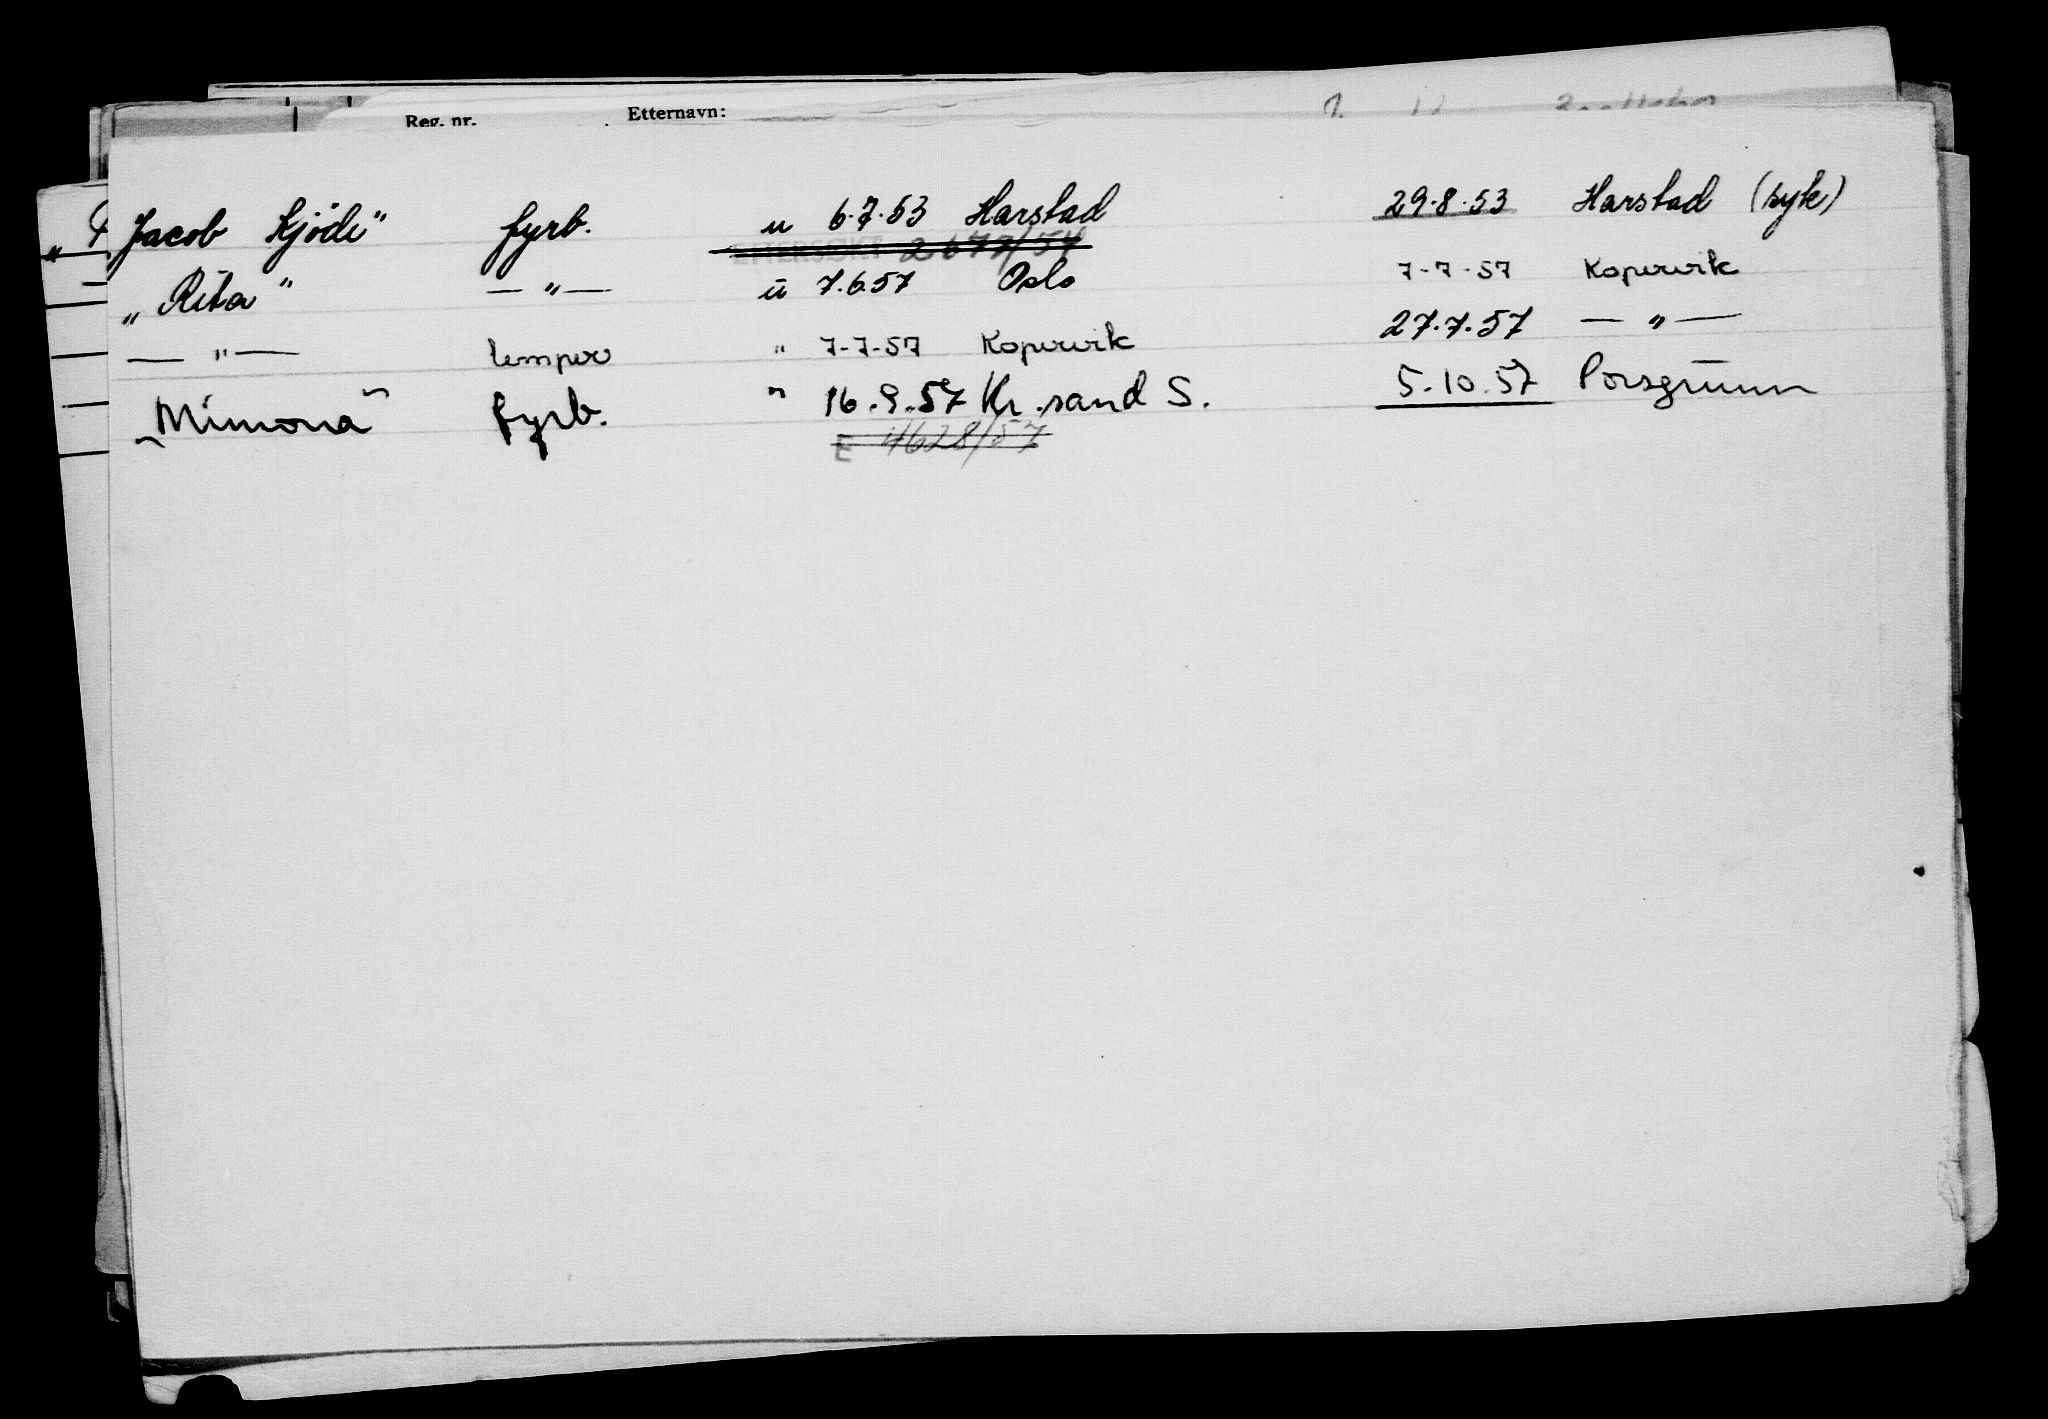 Reg. nr. Etternavn:
Jacob Kjöde" fyrb. u 6.7.53 Harstad 29.8.53 Harstad (syk)
ETTERSØKT 2677/54
„Rita" — " — u 7.6.57 Oslo 7-7-57 Kopervik
— " — lemper " 7-7-57 Kopervik 27.7.57 — " —
„Mimona" fyrb. " 16.9.57 Kr.sand S. 5.10.57 Porsgrunn
E 4628/57